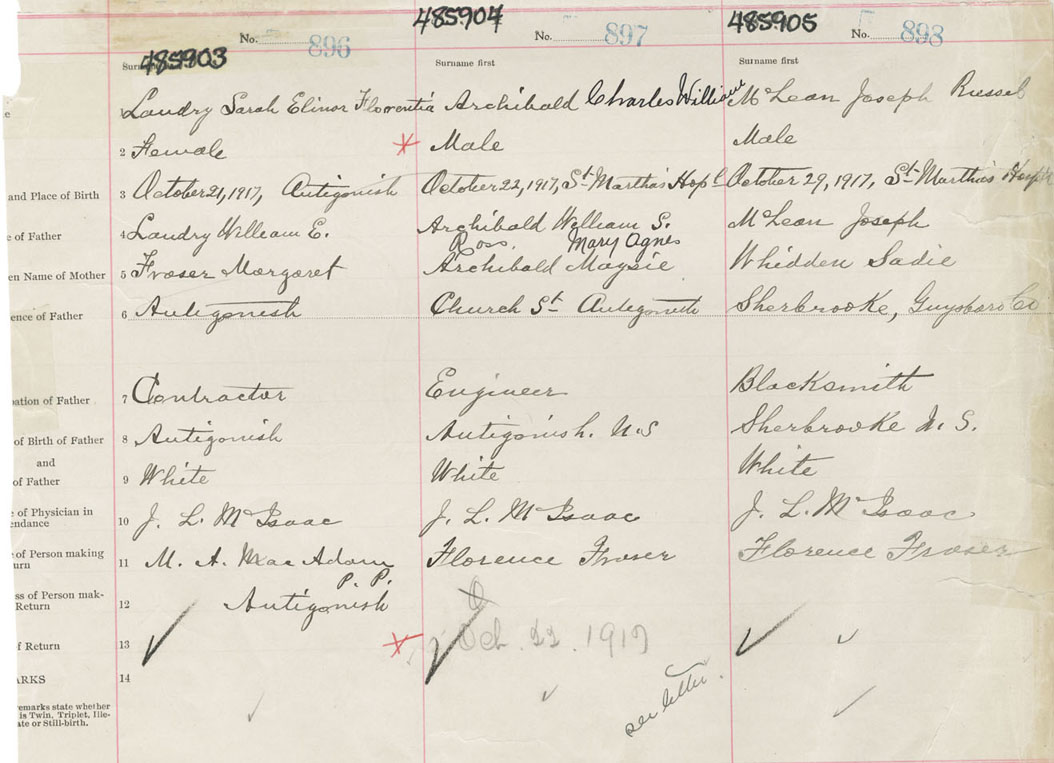 485903 485904 485905
No. 896 No. 897 No. 898
Surname first Surname first
Landry Sarah Elinor Florentia Archibald Charles William McLean Joseph Russel
2 Female Male Male
and Place of Birth 3 October 21, 1917, Antigonish October 22, 1917, St Martha's Hospl October 29, 1917, St Martha's Hospital
e of Father 4 Landry William E. Archibald William S. McLean Joseph
Ross. Mary Agnes
en Name of Mother 5 Fraser Margaret Archibald Maysie Whidden Sadie
ence of Father 6 Antigonish Church St Antigonish Sherbrooke, Guysboro Co
ation of Father 7 Contractor Engineer Blacksmith
of Birth of Father 8 Antigonish Antigonish. N.S Sherbrooke N. S.
and
of Father 9 White White White
of Physician in
endance 10 J. L. McIsaac J. L. McIsaac J. L. McIsaac
of Person making
urn 11 M. A. MacAdam Florence Fraser Florence Fraser
P. P.
ss of Person mak-
Return 12 Antigonish
f Return 13 Oct. 22. 1917
ARKS 14
see letter.
emarks state whether
is Twin, Triplet, Ille-
ate or Still-birth.